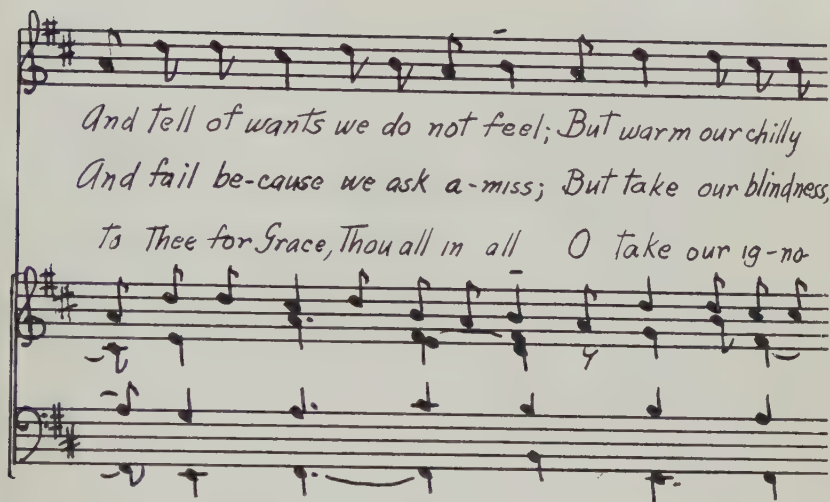 And tell of wants we do not feel; But warm our chilly
And fail be-cause we ask a-miss; But take our blindness,
to Thee for Grace, Thou all in all O take our ig-no-